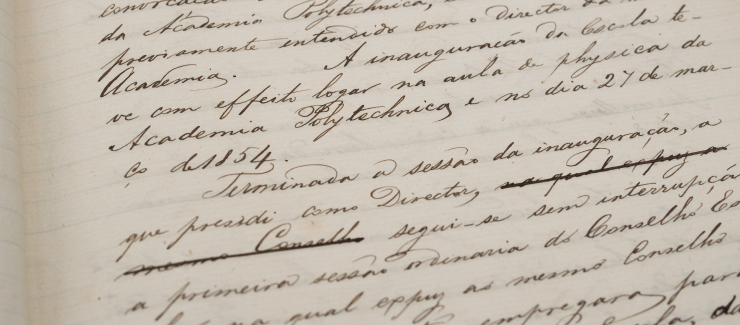 da Academia Polytechnica,
previamente entendido com o Director da
Academia. A inauguração da Escola te-
ve com effeito logar na aula de physica da
Academia Polytechnica, e no dia 27 de mar-
ço de 1854.
Terminada a sessão da inauguração, a
que presidi como Director, na qual expuz ao
mesmo Conselho segui-se sem interrupção
a primeira sessão ordinaria do Conselho Es
na qual expuz ao mesmo Conselho
empregara para